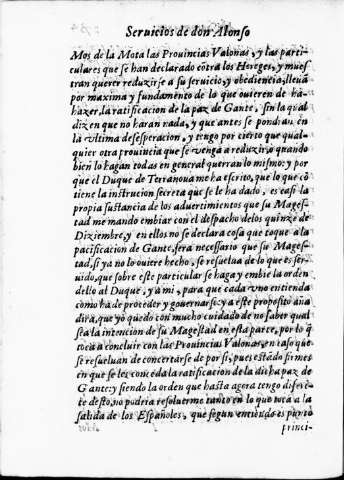 Seruicios de don Alonso
Mos de la Mota las Prouincias Valonas, y las parti-
culares que se han declarado cōtra los Hereges, y mues
tran querer reduzirse a su seruicio, y obediencia, lleuā
por maxima y fundamento de lo que ouieren de ha-
hazer, la ratificacion de la paz de Gante, sin la qual
dizen que no haran nada, y que antes se pondran en
la vltima desesperacion, y tengo por cierto que qual-
quier otra prouincia que se venga a reduzir, o quando
bien lo hagan todas en general querran lo mismo: y por
que el Duque de Terranoua me ha escrito, que lo que cō
tiene la instrucion secreta que se le ha dado, es casi la
propia sustancia de los aduertimientos que su Mages-
tad me mando embiar con el despacho delos quinze de
Diziembre, y en ellos no se declara cosa que toque a la
pacificacion de Gante, sera necessario que su Mages-
tad, si ya no lo ouiere hecho, se resuelua de lo que es ser-
uido, que sobre este particular se haga y embie la orden
dello al Duque, y a mi, para que cada vno entienda
como ha de proceder y gouernarse: y a este proposito aña
dira, que yo quedo con mucho cuidado de no saber qual
sea la intencion de su Magestad en esta parte, por lo q̄
toca a concluir con las Prouincias Valonas, en caso que
se resueluan de concertarse de por si, pues estād firmes
en que se les conceda la ratificacion de la dicha paz de
Gante: y siendo la orden que hasta agora tengo difere-
te desto, no podria resoluerme tanto en lo que toca a la
salida de los Españoles, que segun entiendo es punto
princi-